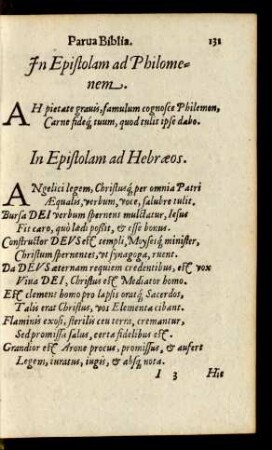 Parua Biblia. 131
In Epistolam ad Philome-
nem.
AH pietate grauis, famulum cognosce Philemon,
Carne fideq́; tuum, quod tulit ipse dabo.
In Epistolam ad Hebræos.
ANgelici legem, Christueq́; per omnia Patri
Æqualis, verbum, voce, salubre tulit.
Bursa DEI verbum spernens mulctatur, Iesus
Fit caro, quò lædi possit, & esse bonus.
Constructor DEVS est templi, Moysesq́; minister,
Christum spernentes, vt synagoga, ruent.
Da DEVS æternam requiem credentibus, est vox
Viua DEI, Christus est Mediator homo.
Est clemens homo pro lapsis oratq́; Sacerdos,
Talis erat Christus, vos Elementa cibant.
Flaminis exosi, sterilis ceu terra, cremantur,
Sed promissa salus, certa fidelibus est.
Grandior est Arone procus, promissus, & aufert
Legem, iuratus, iugis, & absq́; nota.
I 3 Hic